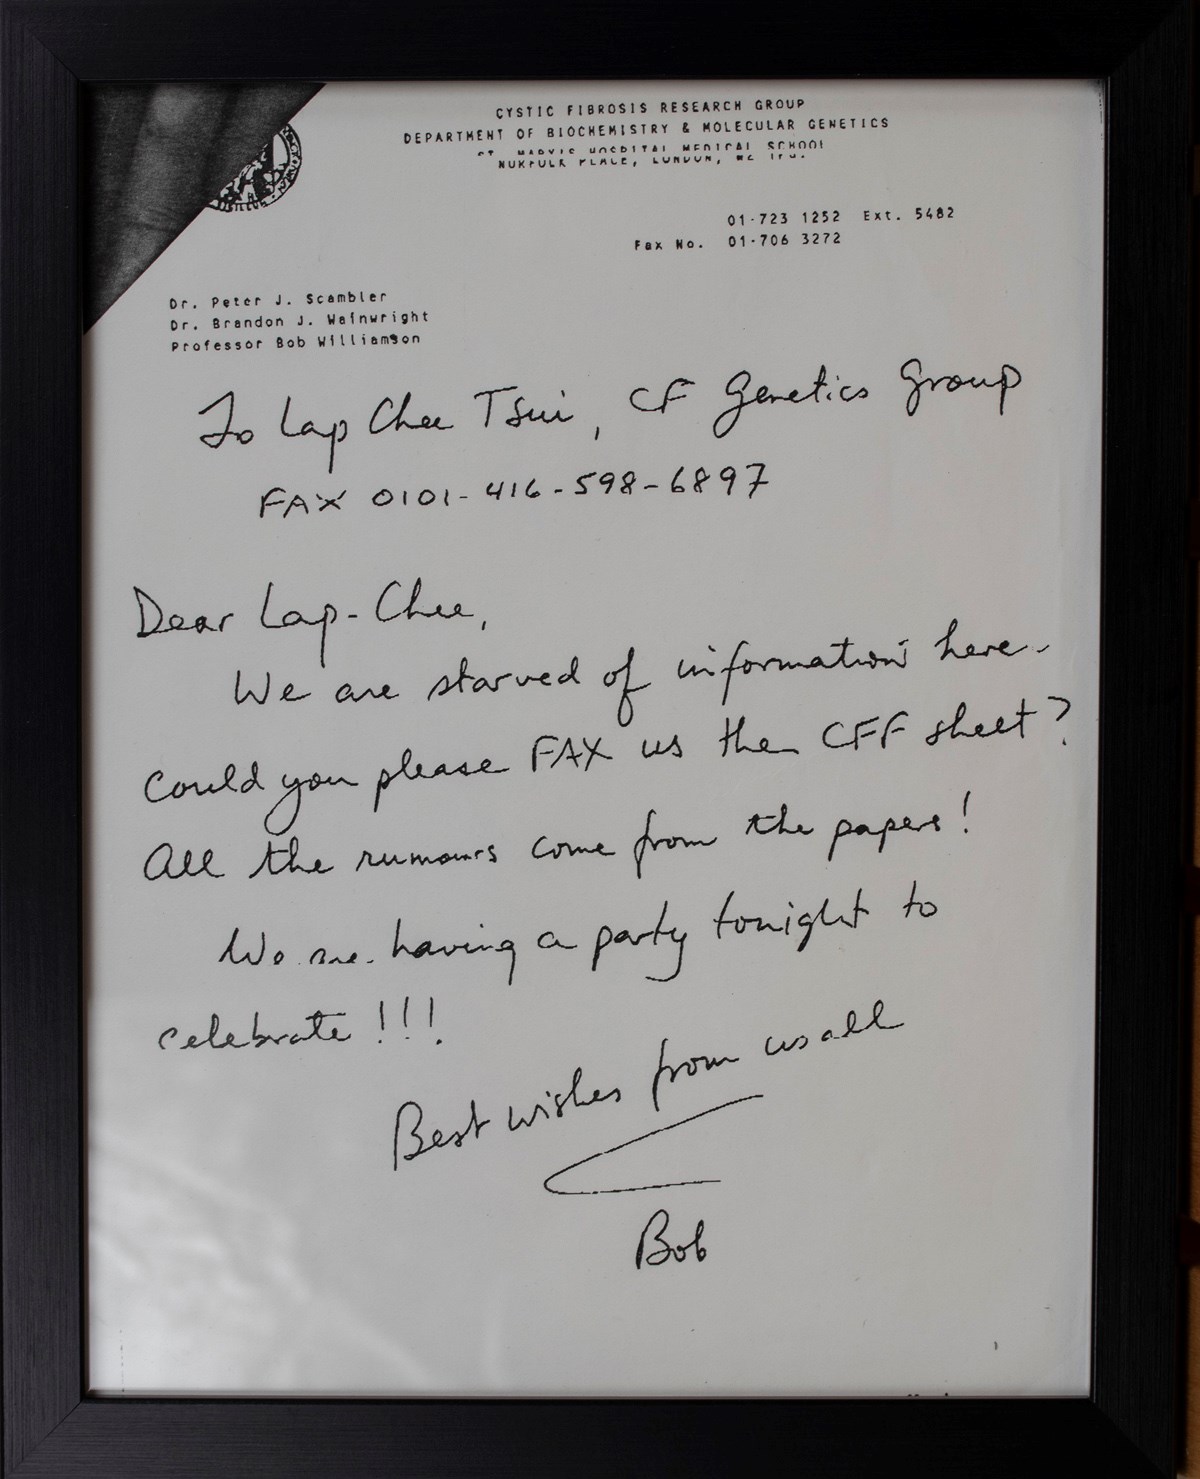 CYSTIC FIBROSIS RESEARCH GROUP
DEPARTMENT OF BIOCHEMISTRY & MOLECULAR GENETICS
ST. MARY'S HOSPITAL MEDICAL SCHOOL
NORFOLK PLACE, LONDON, W2 1PG.
01-723 1252 Ext. 5482
Fax No. 01-706 3272
Dr. Peter J. Scambler
Dr. Brandon J. Wainwright
Professor Bob Williamson
To Lap Chee Tsui, CF Genetics Group
FAX 0101-416-598-6897
Dear Lap-Chee,
We are starved of information here.
Could you please FAX us the CFF sheet?
All the rumours come from the papers!
We are having a party tonight to
celebrate!!!
Best wishes from us all
Bob